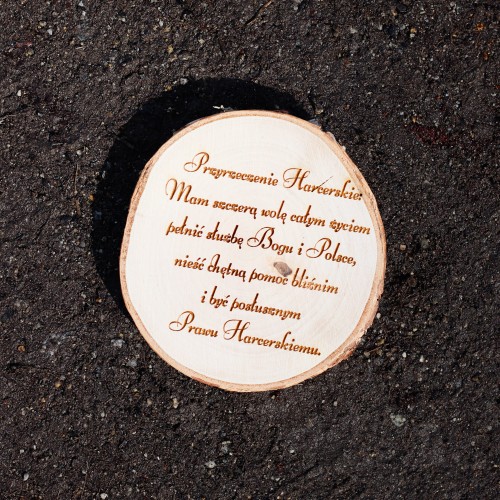 Przyrzeczenie Harcerskie:
Mam szczerą wolę całym życiem
pełnić służbę Bogu i Polsce,
nieść chętną pomoc bliźnim
i być posłusznym
Prawu Harcerskiemu.